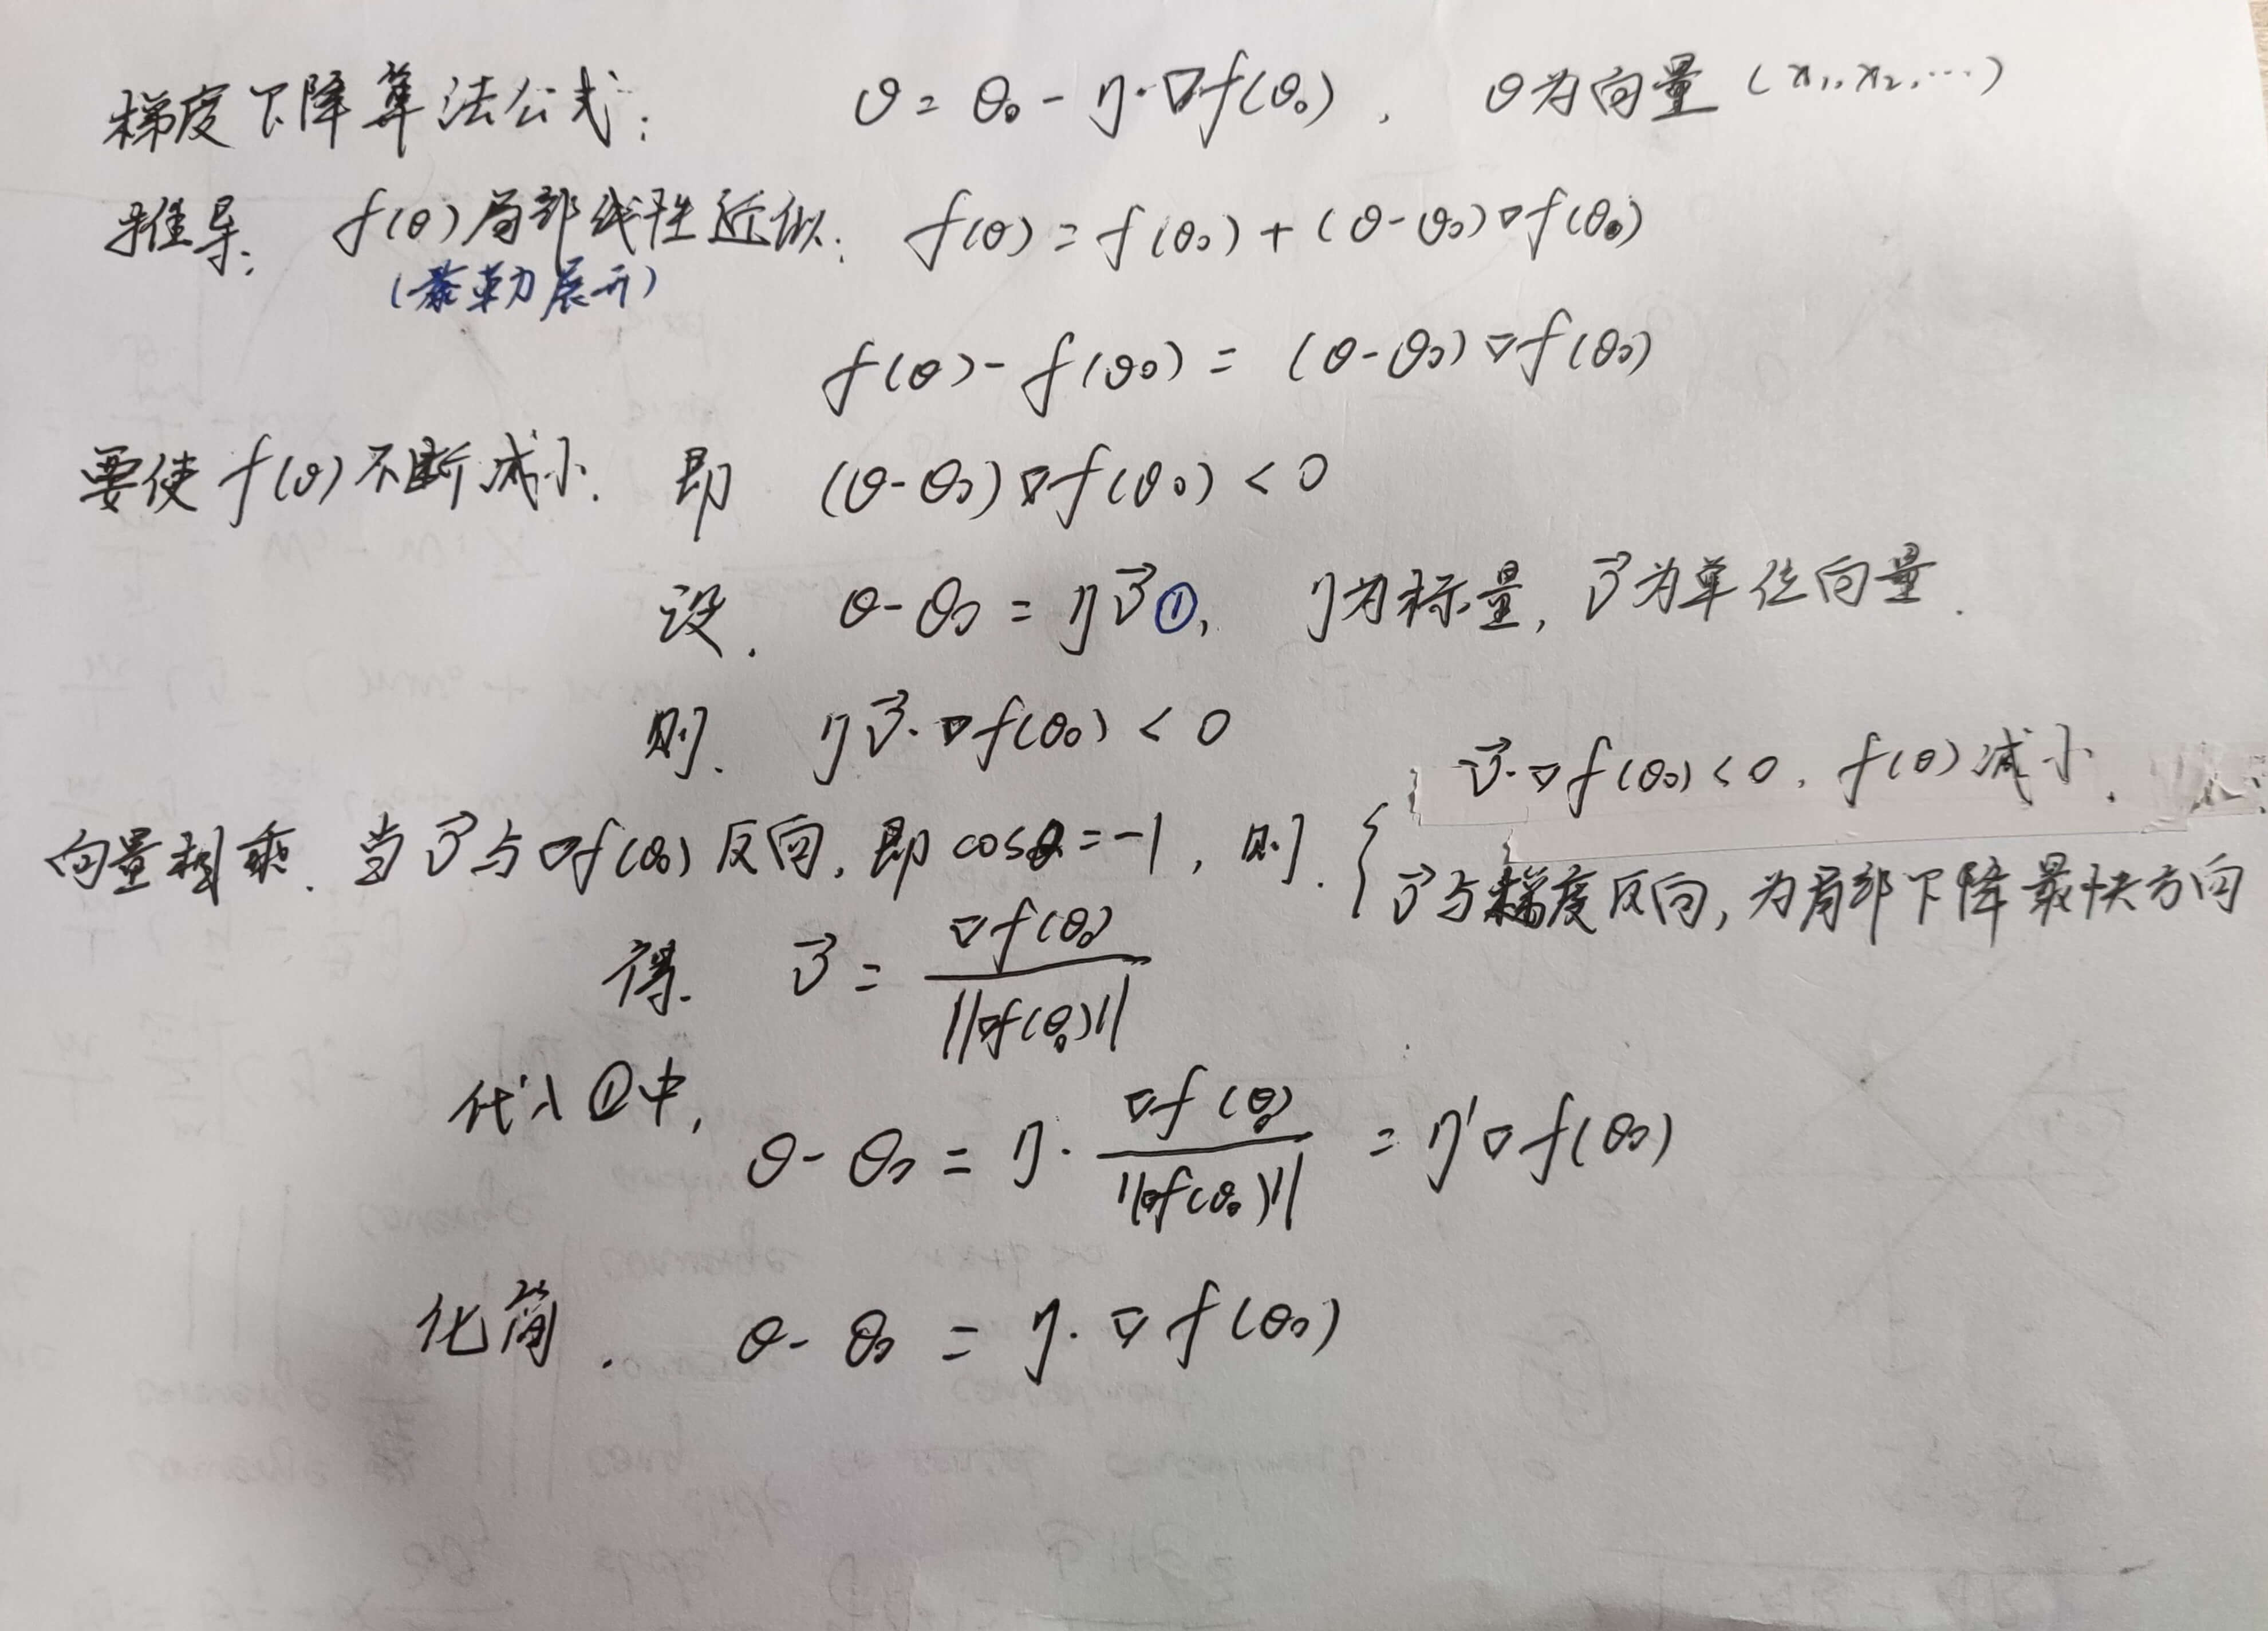 梯度下降算法公式: θ = θ₀ - η·∇f(θ₀), θ为向量 (x₁, x₂, ...)
推导: f(θ)局部线性近似: f(θ) = f(θ₀) + (θ-θ₀)∇f(θ₀)
(泰勒展开)
f(θ) - f(θ₀) = (θ-θ₀)∇f(θ₀)
要使f(θ)不断减小. 即 (θ-θ₀)∇f(θ₀) < 0
设. θ-θ₀ = ηv⃗①, η为标量, v⃗为单位向量.
则. ηv⃗·∇f(θ₀) < 0
v⃗·∇f(θ₀) < 0, f(θ)减小.
向量相乘. 当v⃗与∇f(θ₀)反向, 即cosθ=-1, 则. {
v⃗与梯度反向, 为局部下降最快方向
得. v⃗ = ∇f(θ₀) / ||∇f(θ₀)||
代入①中, θ-θ₀ = η· ∇f(θ₀) / ||∇f(θ₀)|| = η'∇f(θ₀)
化简. θ-θ₀ = η·∇f(θ₀)